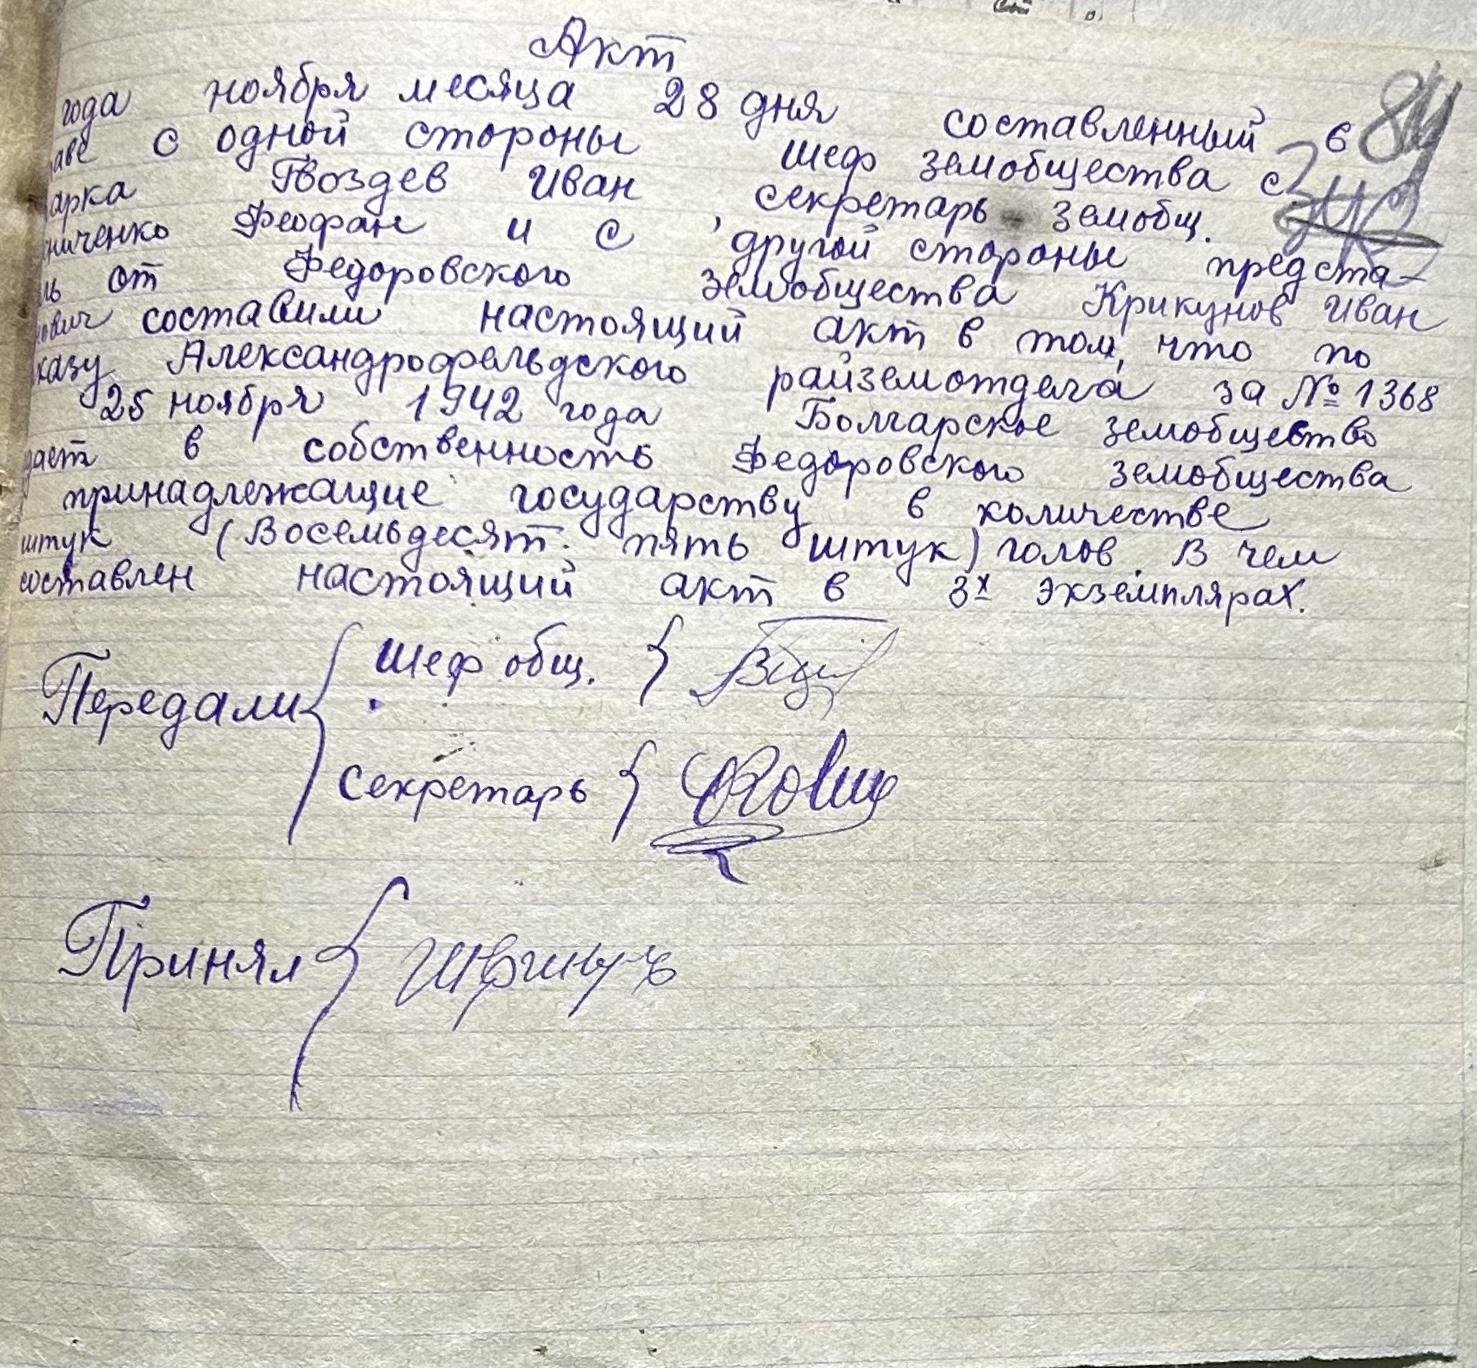 Акт
года ноября месяца 28 дня составленный в
аве с одной стороны шеф земобщества с
арка Гвоздев Иван секретарь земобщ.
ниченко Феофан и с другой стороны предста-
ль от Федоровского земобщества Крикунов Иван
ович составили настоящий акт в том, что по
казу Александрофельдского райземотдела за № 1368
25 ноября 1942 года Болгарское земобщество
дает в собственность Федоровского земобщества
принадлежащие государству в количестве
штук (Восемьдесят пять штук) голов. В чем
составлен настоящий акт в 3х экземплярах.
Передали
шеф общ.
секретарь
Принял